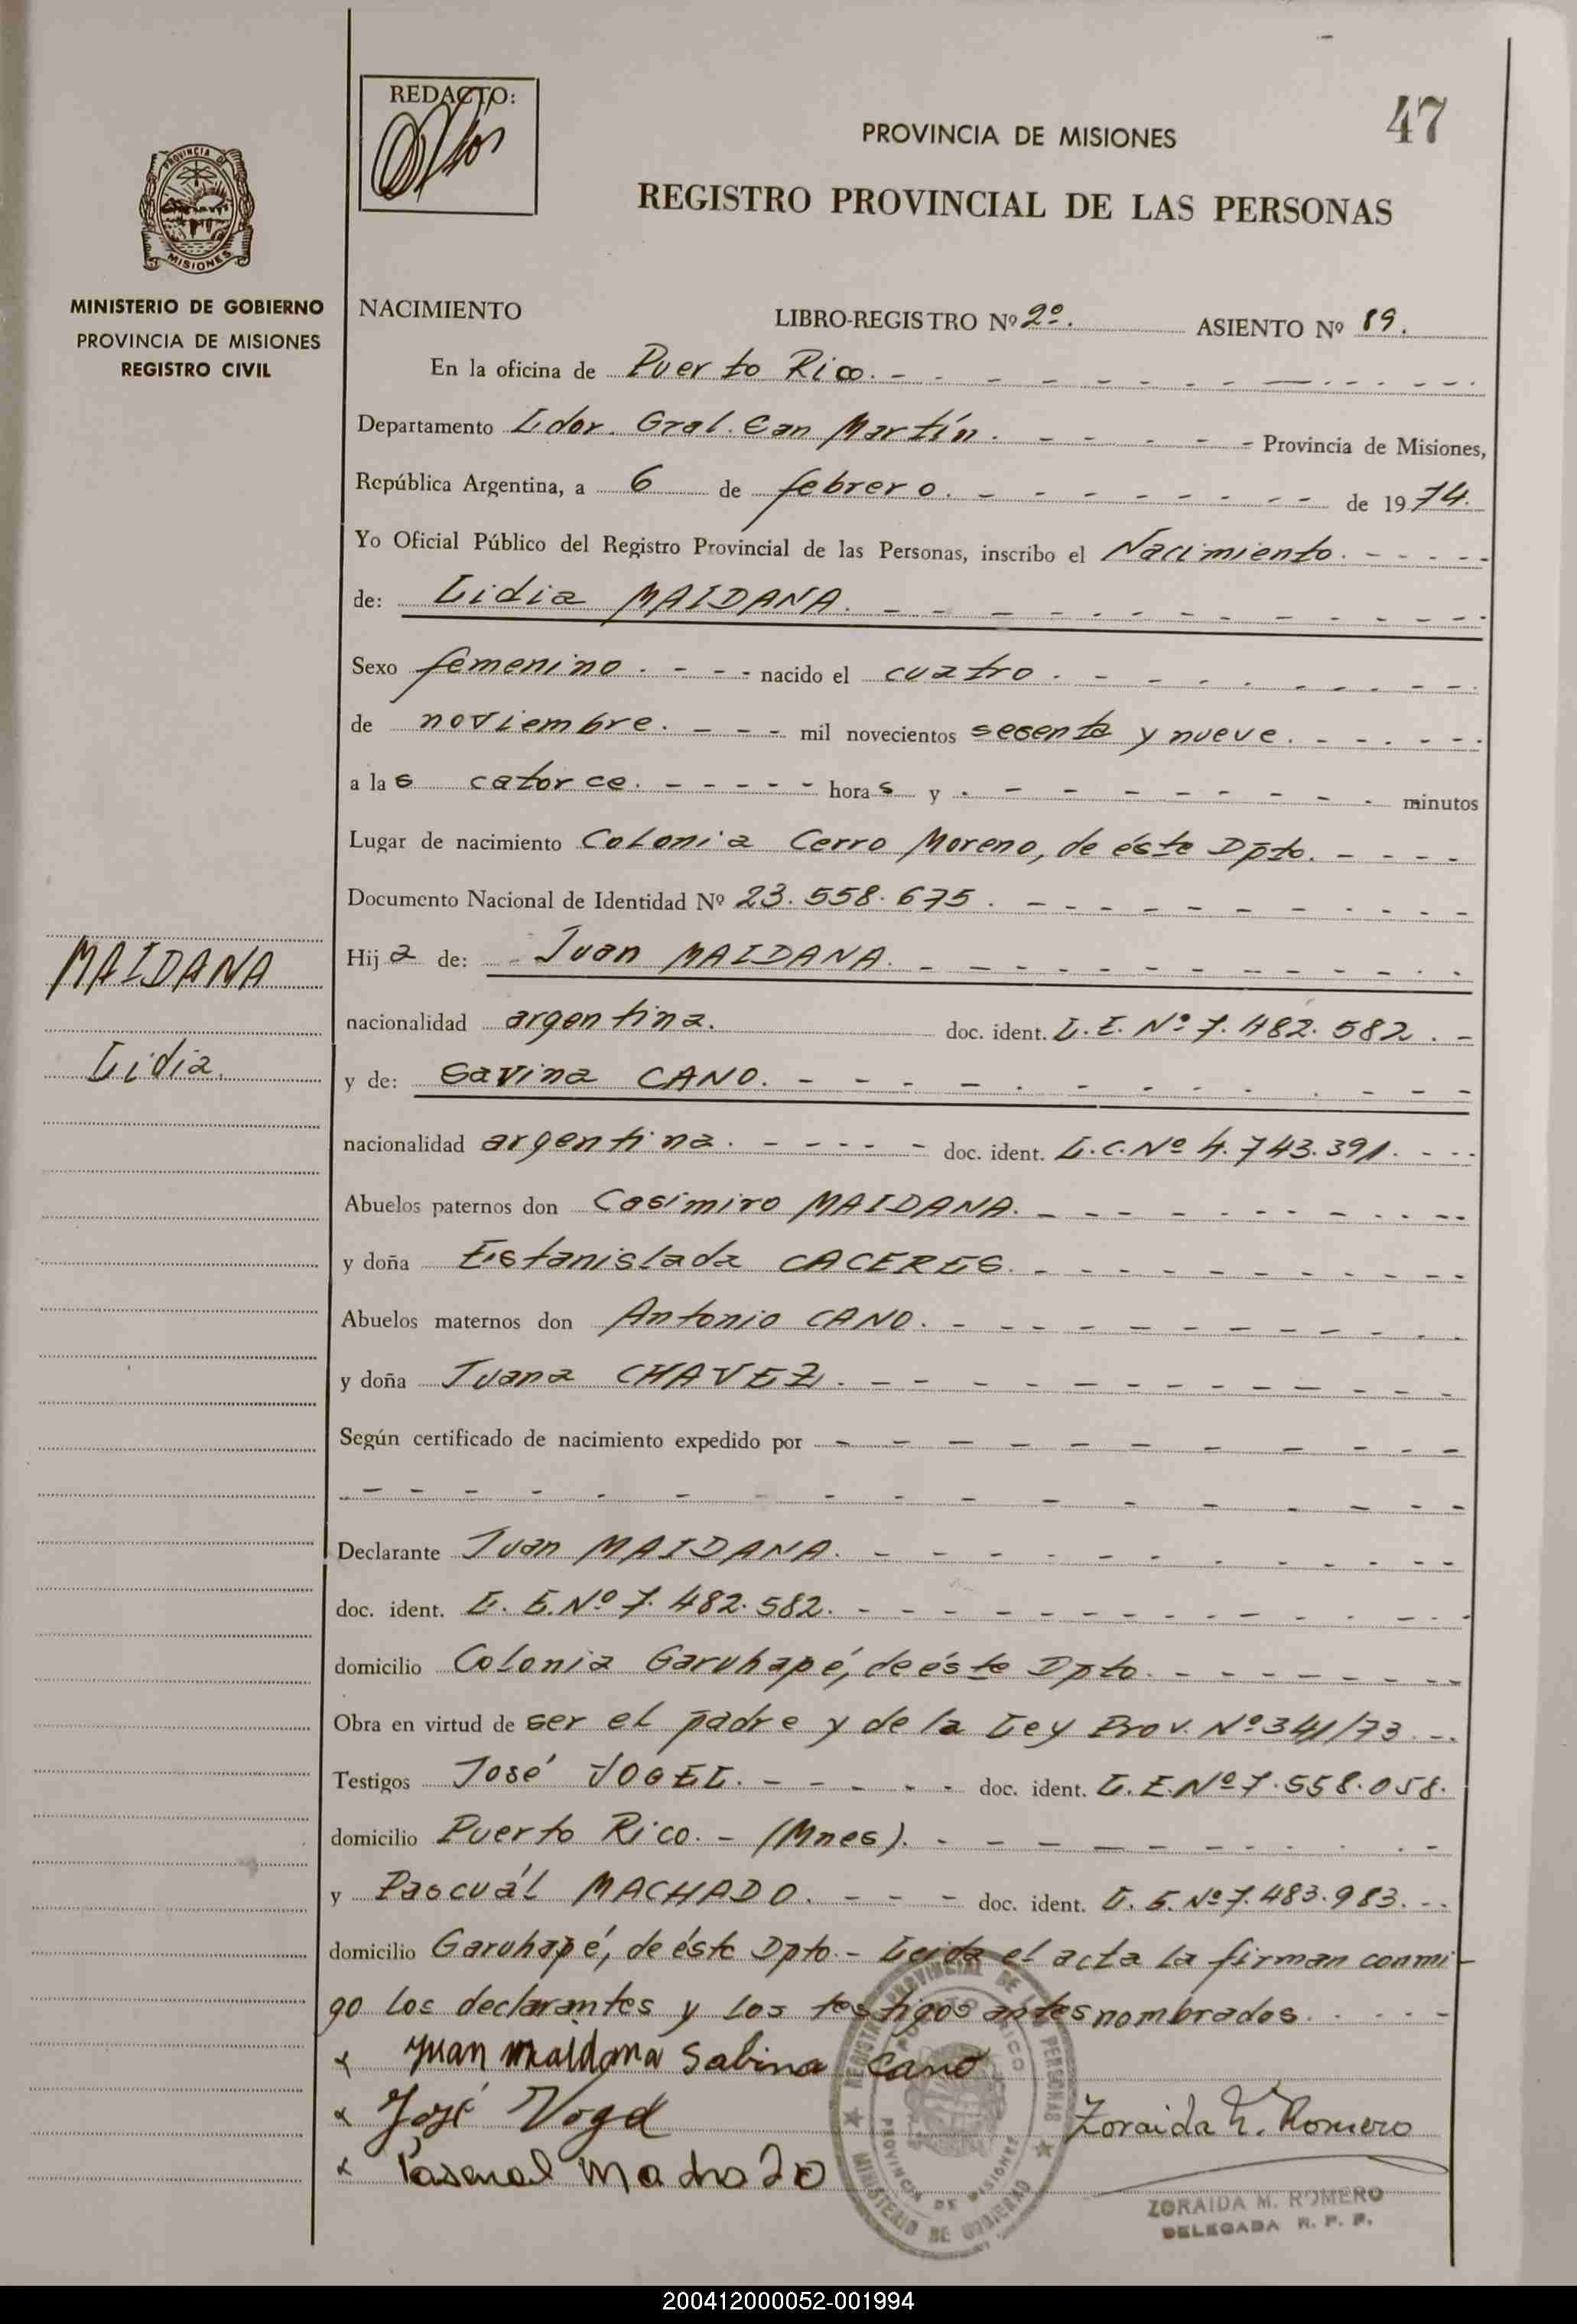 47
REDACTO:
PROVINCIA DE MISIONES
REGISTRO PROVINCIAL DE LAS PERSONAS
PROVINCIA DE
MISIONES
MINISTERIO DE GOBIERNO
PROVINCIA DE MISIONES
REGISTRO CIVIL
NACIMIENTO LIBRO-REGISTRO Nº 2º. ASIENTO Nº 89.
En la oficina de Puerto Rico.
Departamento Ldor. Gral. San Martín. Provincia de Misiones,
República Argentina, a 6 de febrero. de 1974.
Yo Oficial Público del Registro Provincial de las Personas, inscribo el Nacimiento.
de: Lidia MAIDANA.
Sexo femenino. nacido el cuatro.
de noviembre. mil novecientos sesenta y nueve.
a las catorce. horas y minutos
Lugar de nacimiento Colonia Cerro Moreno, de éste Dpto.
Documento Nacional de Identidad Nº 23.558.675.
MAIDANA
Lidia.
Hija de: Juan MAIDANA.
nacionalidad argentina. doc. ident. L.E. Nº 7.482.582.
y de: Savina CANO.
nacionalidad argentina. doc. ident. L.C. Nº 4.743.391.
Abuelos paternos don Casimiro MAIDANA.
y doña Estanislada CACERES.
Abuelos maternos don Antonio CANO.
y doña Juana CHAVEZ.
Según certificado de nacimiento expedido por
Declarante Juan MAIDANA.
doc. ident. L.E. Nº 7.482.582.
domicilio Colonia Garuhapé, de éste Dpto.
Obra en virtud de ser el padre y de la Ley Prov. Nº 341/73.
Testigos José VOGEL. doc. ident. L.E. Nº 7.558.058.
domicilio Puerto Rico.- (Mnes).
y Pascuál MACHADO. doc. ident. L.E. Nº 7.483.983.
domicilio Garuhapé, de éste Dpto.- Leida el acta la firman conmi-
go los declarantes y los testigos antes nombrados.
x Juan Maidana Sabina Cano
x José Vogel
x Pascual Machado
Zoraida M. Romero
ZORAIDA M. ROMERO
DELEGADA R. P. P.
REGISTRO PROVINCIAL DE LAS PERSONAS
PUERTO RICO
PROVINCIA DE MISIONES
MINISTERIO DE GOBIERNO
200412000052-001994